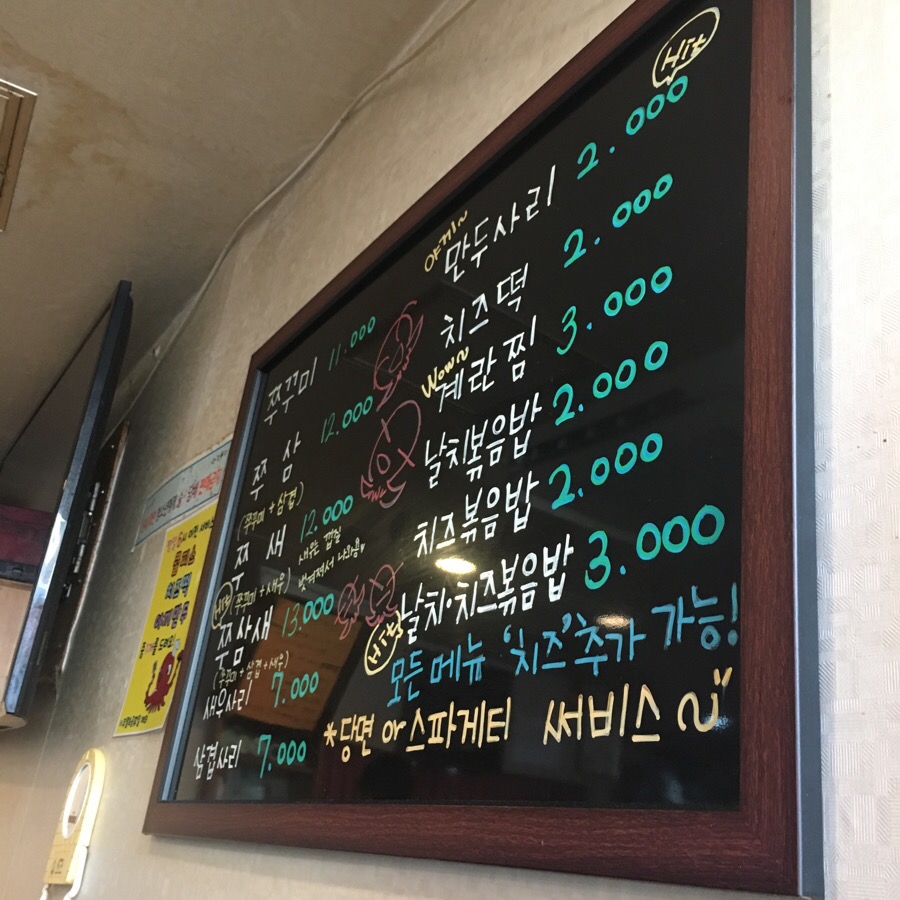 쭈꾸미 11.000
쭈 삼 12.000
(쭈꾸미 + 삼겹)
쭈 새 12.000
(쭈꾸미 + 새우)
새우는 껍질
벗겨져서 나와용♥
Hit
쭈삼새 13.000
(쭈꾸미 + 삼겹 + 새우)
새우사리 7.000
삼겹사리 7.000
Hit
야끼~
만두사리 2.000
치즈떡 2.000
Wow~
계란찜 3.000
날치볶음밥 2.000
치즈볶음밥 2.000
Hit
날치·치즈볶음밥 3.000
모든 메뉴 '치즈' 추가 가능!
*당면 or 스파게티 써비스~